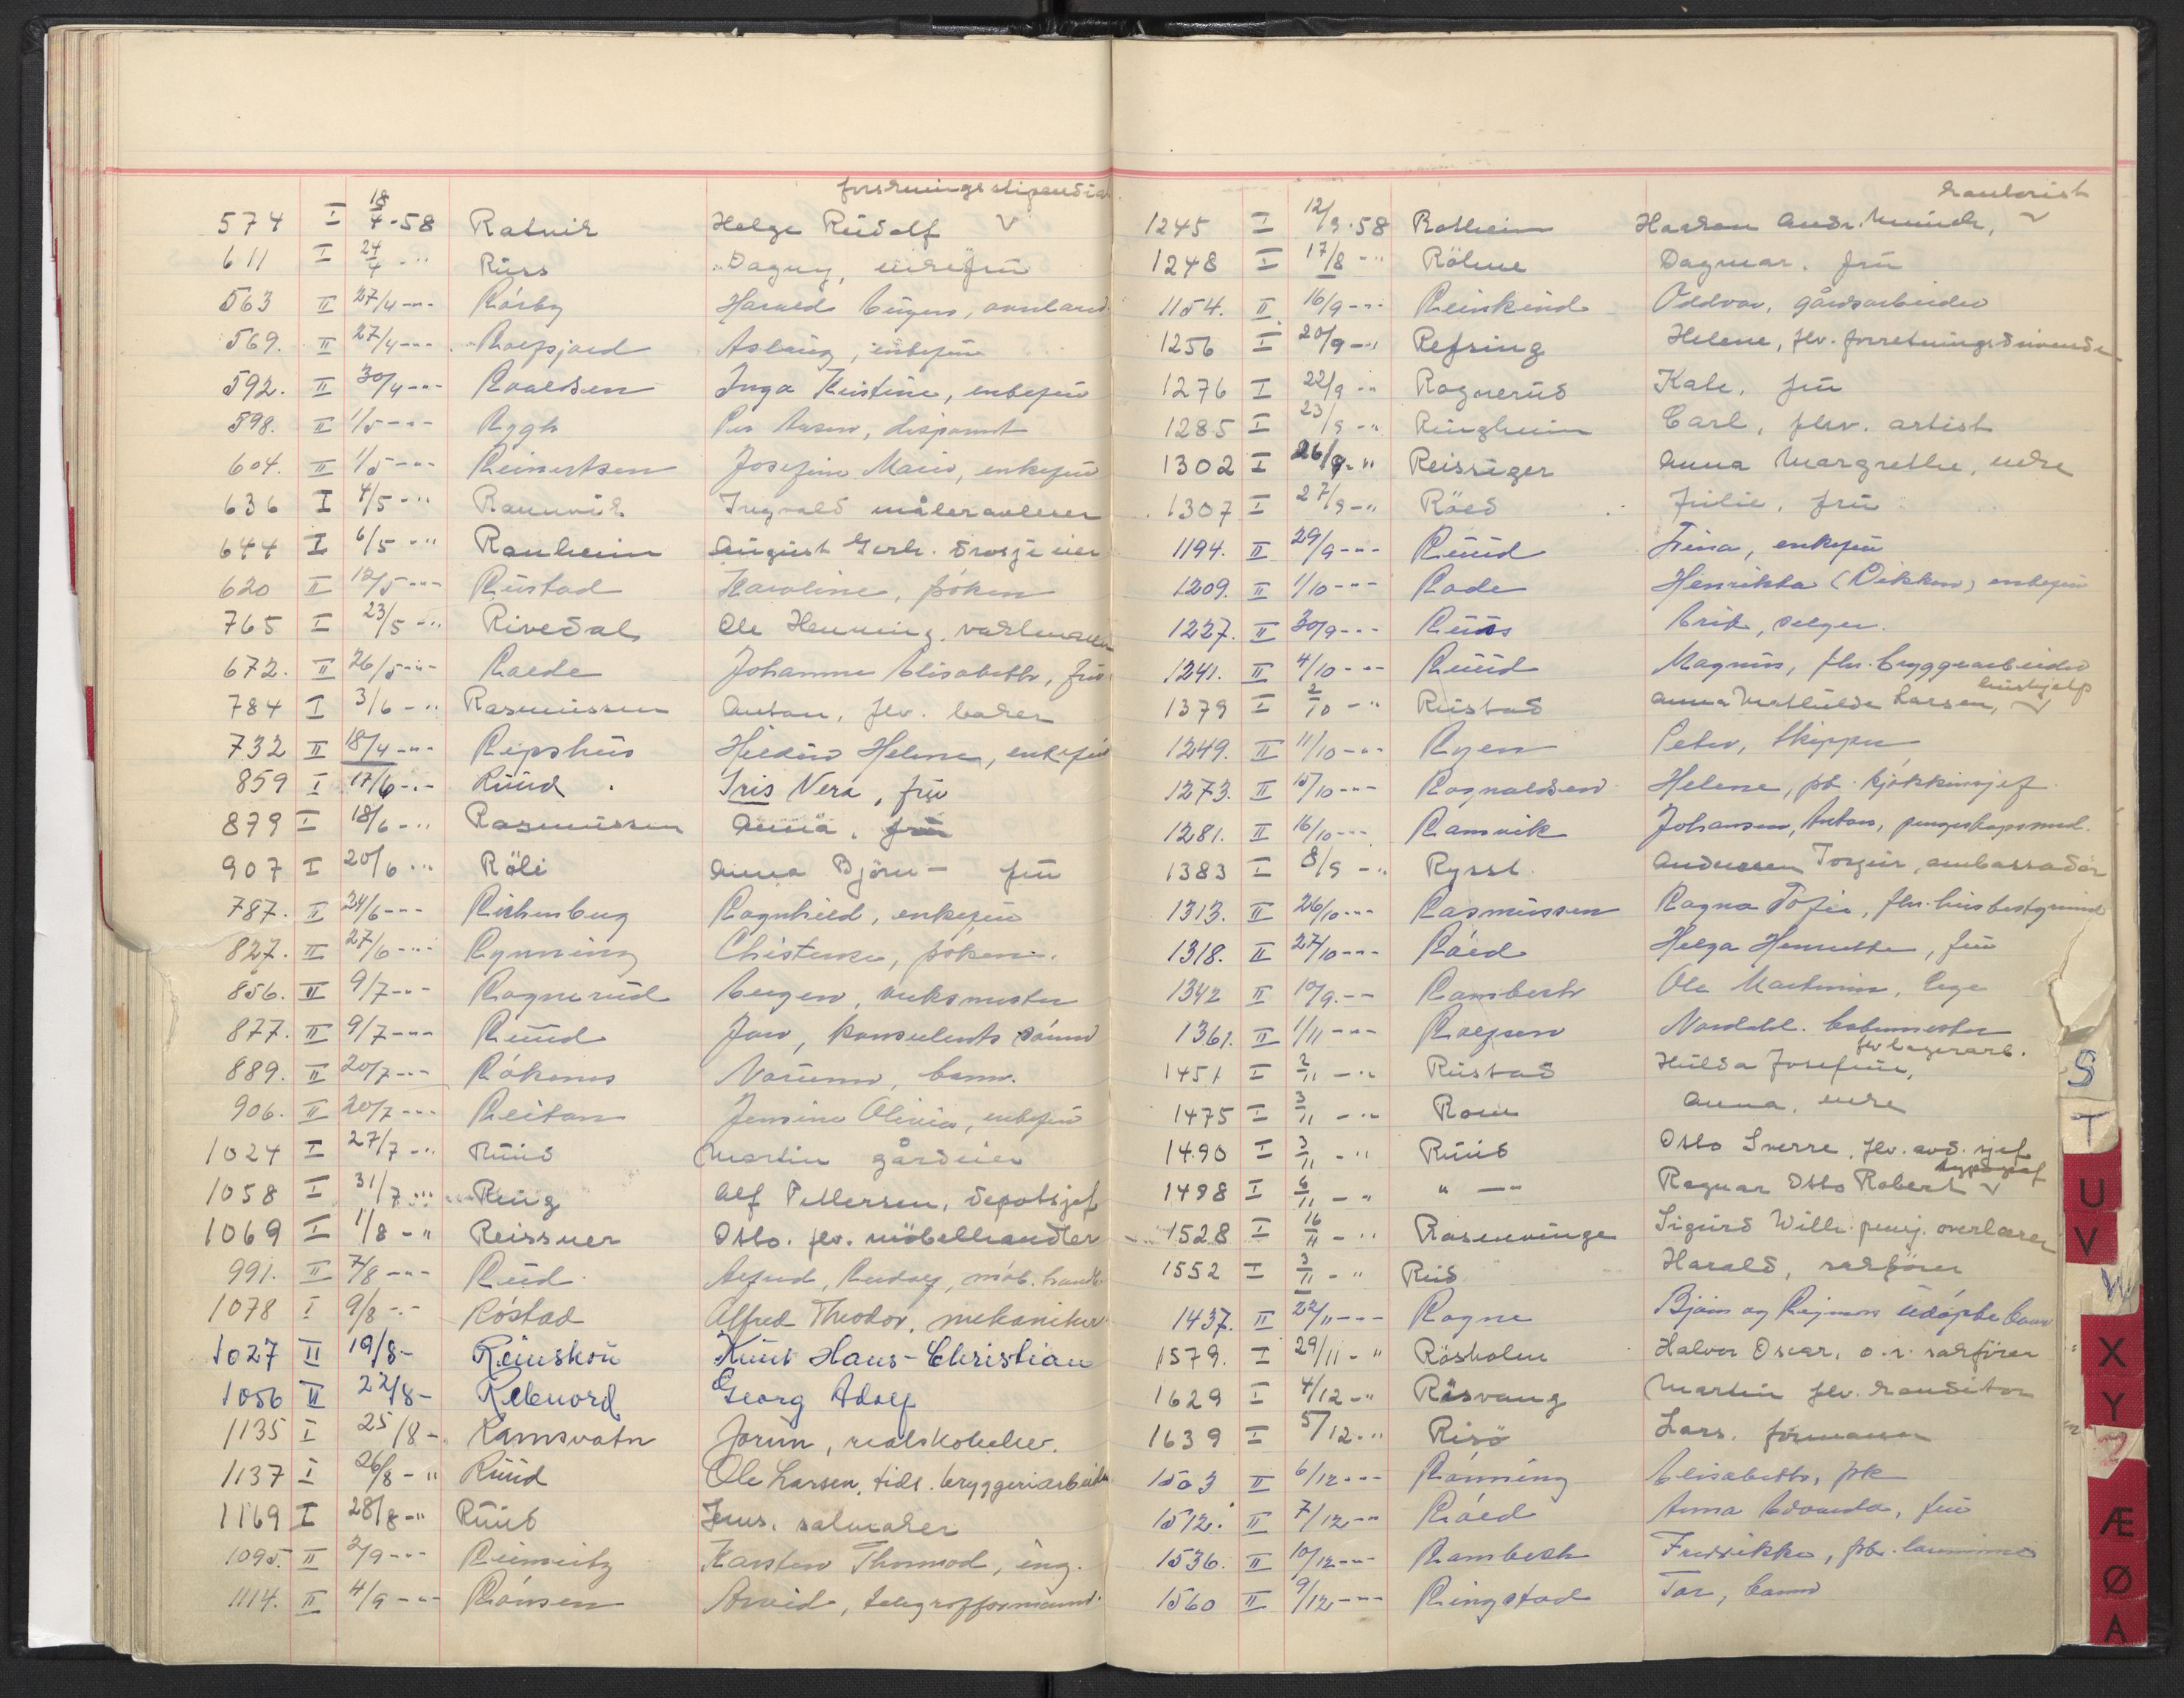 forskningsstipendiat
574 I 18/4-58 Ratvik Helge Rudolf V
611 I 24/4 -" Russ Dagny, enkefru
563 II 27/4 -"- Rösby Harald
569. II 27/4 -"- Roefsjord Aslaug, enkefru
592. II 30/4 -"- Roaldsen Inga Kristine, enkefru
598. II 1/5 -"- Rygh Per disponent
604. II 1/5 -"- Reinertsen Josefine Marie, enkefru
636 I 4/5 -" Rannvik Ingvald måleravleser
644 I 6/5 -" Ranheim August Gerh. drosjeeier
620 II 12/5 -"- Rustad Karoline, fröken
765 I 23/5 -" Rivedal Ole Henning. vaktmann
672. II 26/5 -"- Raede Johanne Elisabeth, fru
784 I 3/6 -" Rasmussen Anton, flv. baker
732 II 18/4 -"- Ripshus Helene, enkefru
859 I 17/6 -"- Ruud Iris Vera, fru
879 I 18/6 -" Rasmussen Anna, fru
907 I 20/6 -" Röli Anna Björn- fru
787. II 24/6 -"- Richenberg Ragnhild, enkefru
827. II 27/6 -"- Rynning fröken.
856. II 9/7 -"- Rognerud Eugen, verksmester
877. II 9/7 -"- Ruud Jan, konsulents sönn
889. II 20/7 -"- Rökenes barn.
906. II 20/7 -"- Reitan Jensine Olivia, enkefru
1024 I 27/7 -" Ruud Martin gårdeier
1058 I 31/7 -" Reng Alf Pettersen, depotsjef
1069 I 1/8 -" Reissner Otto. flv. möbelhandler
991. II 7/8 -"- Rud Alfred, Rudolf, möb. handl.
1078 I 9/8 -"- Röstad Alfred Theodor, mekaniker
1027 II 19/8 - Reinskou Knut Hans-Christian
1056 II 22/8 - Rebnord Georg Adolf
1135 I 25/8 - Ramsvatn Jorun, realskoleelev.
1137 I 26/8 -" Ruud Ole Larsen, tidl. bryggeriarbeider
1169 I 28/8 -" Ruud Jens. salmaker
1095. II 2/9 -"- Reimeitz Karsten Thormod, ing.
1114. II 4/9 -"- Rönsen Arvid, telegrafformann.
kontorist
1245 I 12/9-58 Rotheim Haakon Andr. Munch, V
1248 I 17/8 -" Röhne Dagmar. fru
1154. II 16/9 -"- Reinkind Oddvar, gårdsarbeider
1256 I 20/9 -" Refring Helene, flv. forretningsdrivende
1276 I 22/9 -" Rognerud Kate, fru
1285 I 23/9 -" Ringheim Carl, flv. artist
1302 I 26/9 -" Reissiger Anna Margrethe, enke
1307 I 27/9 -" Röed Julie, fru
1194. II 29/9 -"- Ruud Trina, enkefru
1209. II 1/10 -"- Rode Henrikka (Dikken) enkefru
1227. II 30/9 -"- Ruus Erik, selger.
1241. II 4/10 -"- Ruud Magnus, flv. bryggearbeider
hushjelp
1379 I 2/10 -" Rustad Anna Mathilde Larsen, V
1249. II 11/10 -"- Ryen Peter, skipper
1273. II 15/10 -"- Rognaldsen Helene, fhv. kjökkensjef
1281. II 16/10 -"- Ramvik Johansen, Anton, pengeskapssmed.
1383 I 8/9 -" Rysst Anderssen Torgeir, ambassadör
1313. II 26/10 -"- Rasmussen Ragna Sofie, flv. husbestyrerinne
1318. II 27/10 -"- Röed Helga Henriette, fru
1342 II 10/9. -- Rambech Ole Martinius, lege
1361. II 1/11 -"- Rolfsen Nordahl.
flv lagerarb.
1451 I 2/11 -" Rustad Hulda Josefine,
1475 I 3/11 -" Rom Anna, enke
1490 I 3/11 -" Ruud Otto Sverre, flv. avd. sjef
typograf
1498 I 6/11 -" " -" Ragnar Otto Robert V
1528 I 16/11 -" Rosenvinge Sigurd Wilh. pensj. overlærer
1552 I 3/11 -" Rud Harald, sakförer
1437. II 22/11 -"- Rogne Björn og Reimers udöpte barn
1579. I 29/11 -" Rösholm Halvor Oscar, o.r. sakförer
1629 I 4/12 -" Rösvang Martin flv. konditor
1639 I 5/12 -" Risö Lars, formann
1503 II 6/12 -"- Rönning Elisabeth, frk
1512. II 7/12 -"- Röed Anna fru
1536. II 10/12 -"- Rambech Fredrikke,
1560 II 9/12 -"- Ringstad Tor, barn
S
T
U
V
W
X
Y
Z
Æ
Ø
A